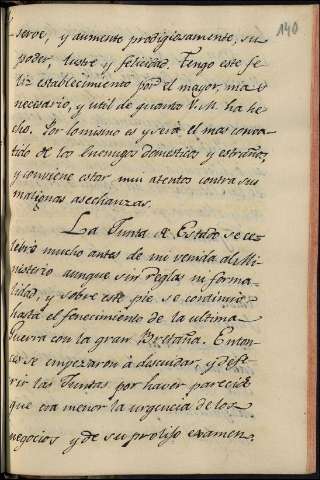 140
serve, y aumente prodigiosamente, su
poder, lustre y felicidad. Tengo este fe-
liz establecimiento por el mayor, mas
necesario, y util de quanto V. M. ha he-
cho. Por lo mismo es y será el mas comba-
tido de los Enemigos domesticos y estraños,
y conviene estar mui atentos contra sus
malignas asechanzas.
La Junta de Estado se ce-
lebró mucho antes de mi venida al Mi-
nisterio aunque sin reglas ni forma-
lidad, y sobre este pie se continuó
hasta el fenecimiento de la ultima
Guerra con la gran Bretaña. Enton-
ces se empezaron à descuidar, y dife-
rir las Juntas por haver parecido
que era menor la urgencia de los
negocios y de su prolijo examen.